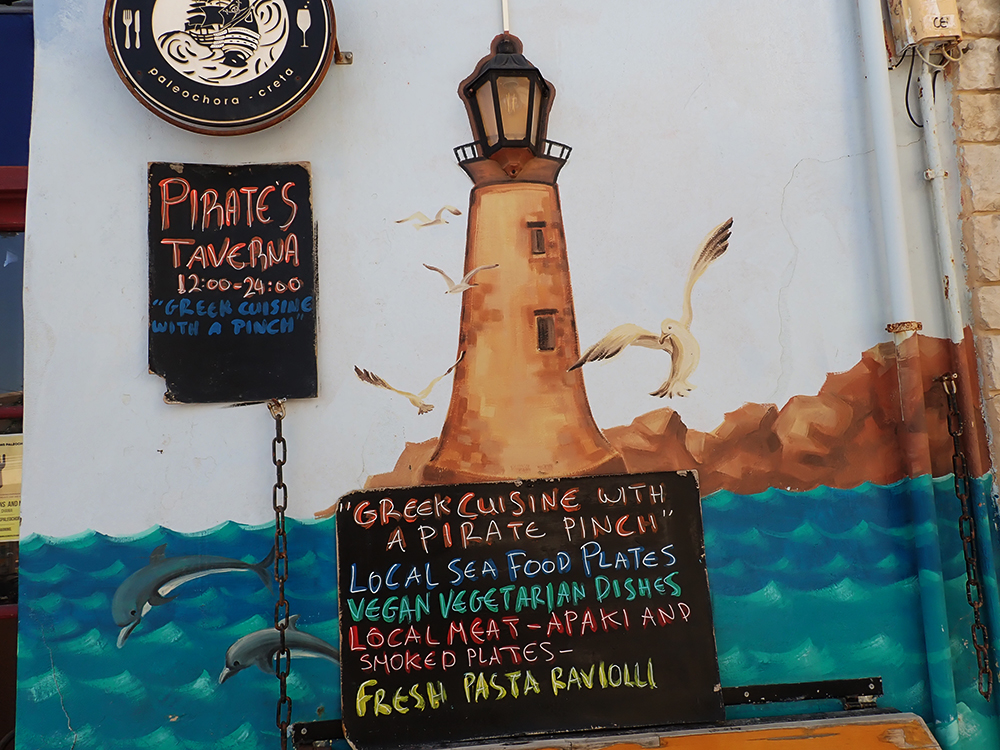 paleochora - creta
PIRATE'S
TAVERNA
12:00-24:00
"GREEK CUISINE
WITH A PINCH"
"GREEK CUISINE WITH
A PIRATE PINCH"
LOCAL SEA FOOD PLATES
VEGAN VEGETARIAN DISHES
LOCAL MEAT-APAKI AND
SMOKED PLATES-
FRESH PASTA RAVIOLLI
CE